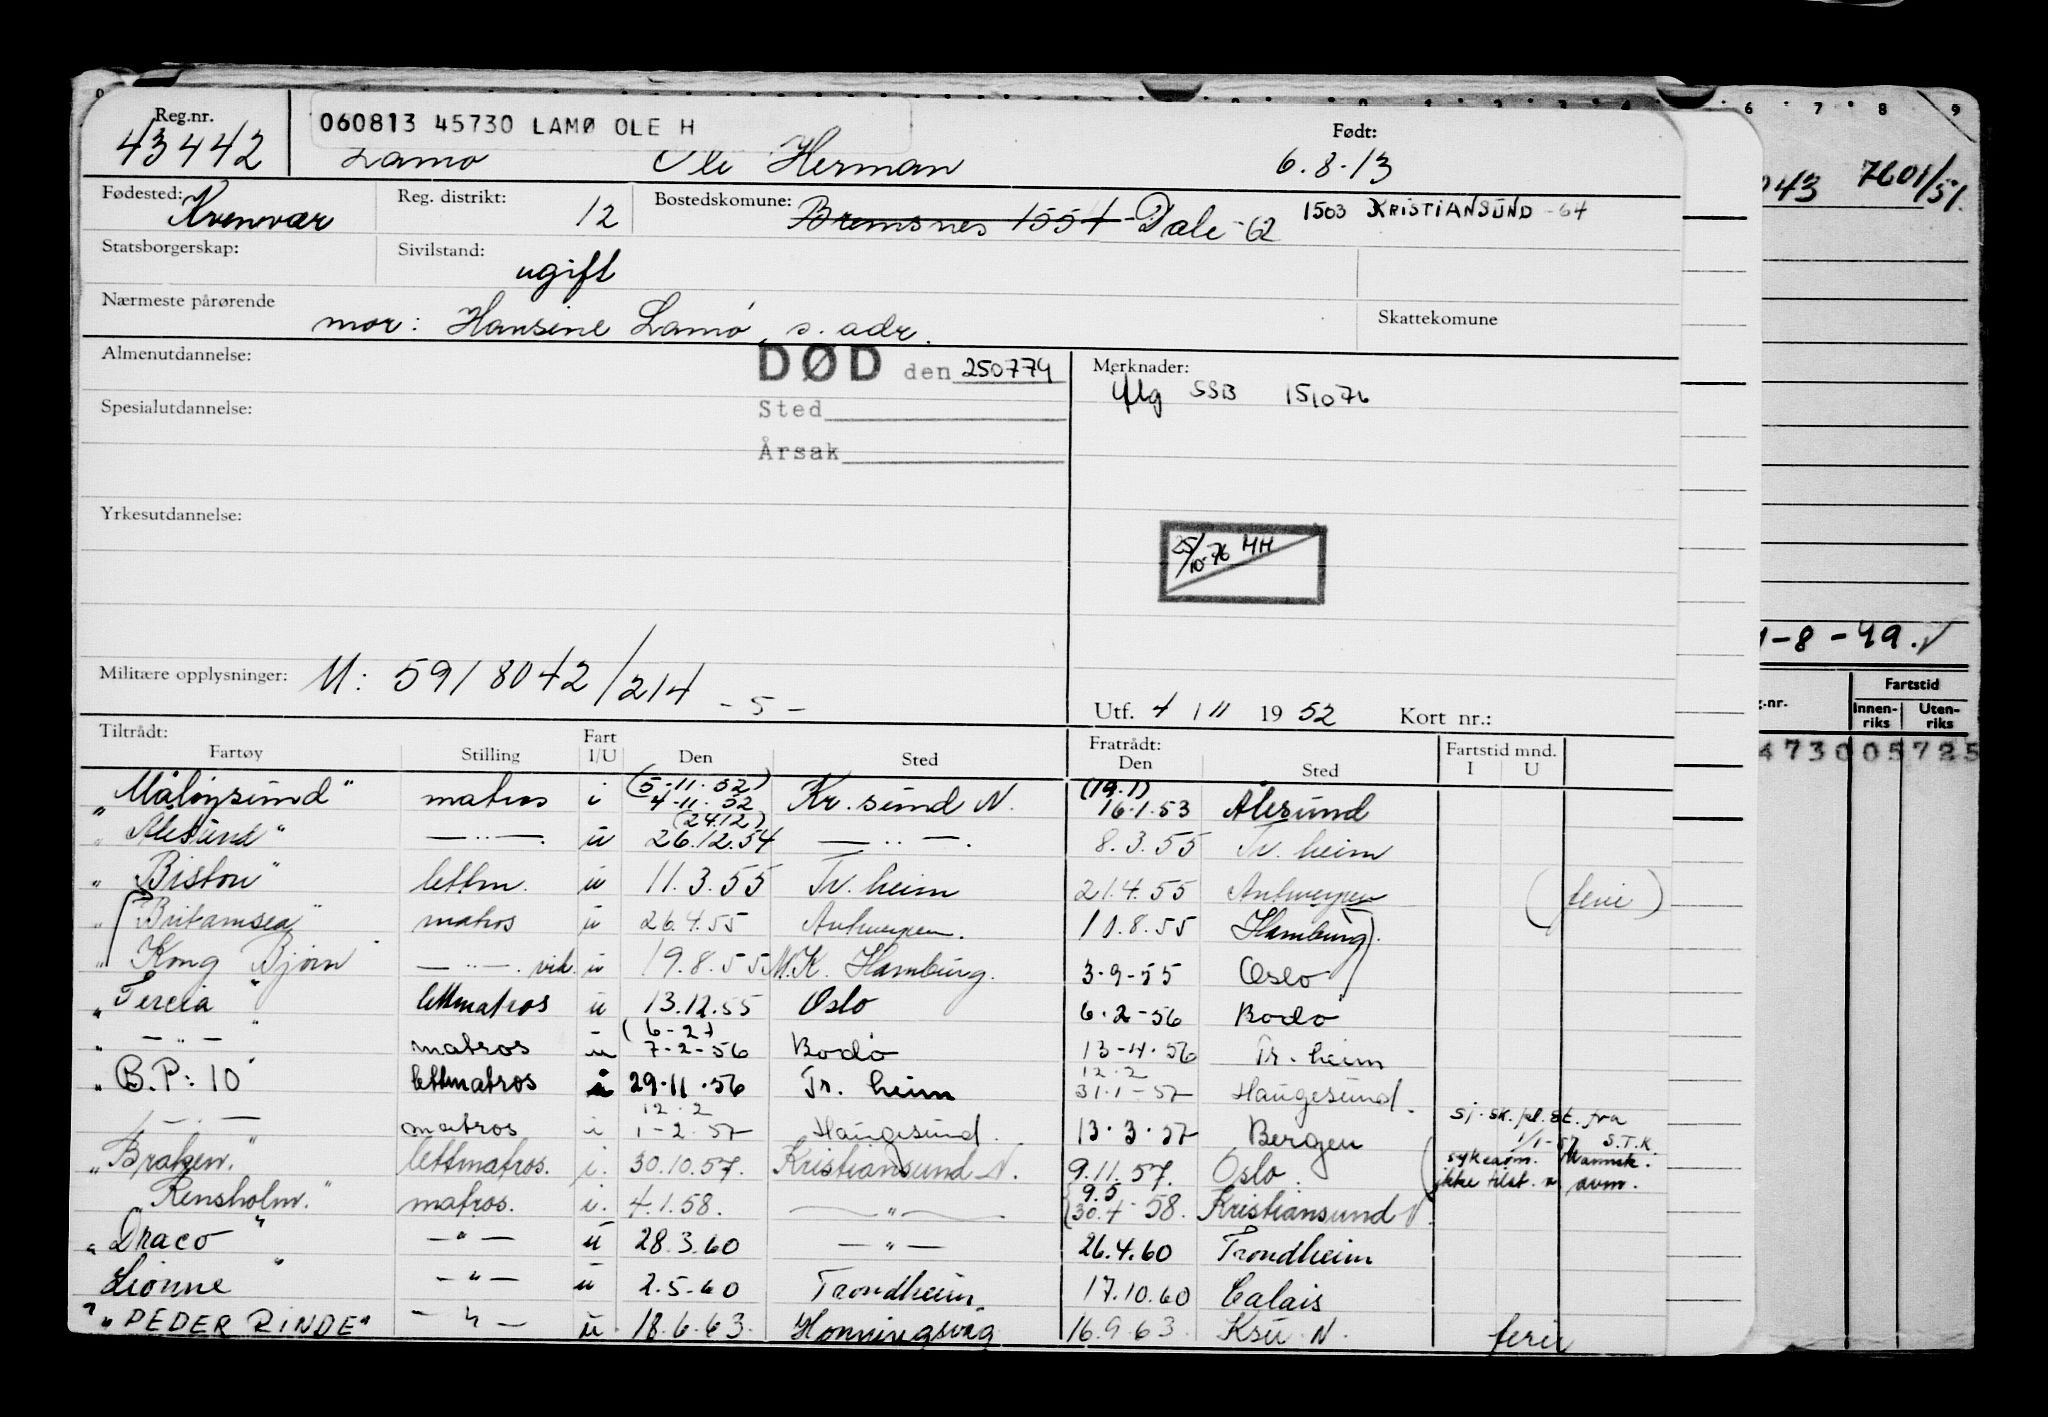 Reg.nr.
43442
060813 45730 LAMØ OLE H
Født:
Lamø Ole Herman 6.8.13
043 7601/51.
Fødested: Kvenvær
Reg. distrikt: 12
Bostedskomune: Bremsnes 1554 Dale -62 1503 KRISTIANSUND -64
Statsborgerskap:
Sivilstand: ugift
Nærmeste pårørende
mor: Hansine Lamø, s. adr.
Skattekomune
Almenutdannelse:
DØD den 250774
Merknader:
iflg SSB 151076
Spesialutdannelse:
Sted
Årsak
Yrkesutdannelse:
25/10-76 HH
-8-49.
Militære opplysninger: M: 591 8042/214 -5-
Utf. 4/11 1952 Kort nr.:
Fartstid
Innenriks Utenriks
473005725
Tiltrådt: Fartøy Stilling Fart I/U Den Sted Fratrådt: Den Sted Fartstid mnd. I U
"Måløysund" matros i (5-11-52) 4-11-52 Kr.sund N. (19.1) 16.1.53 Ålesund
"Ålesund" —"— u (24.12) 26.12.54 —"— 8.3.55 Tr.heim
"Biston" lettm. u 11.3.55 Tr.heim 21.4.55 Antwerpen (ferie)
"Britamsea" matros u 26.4.55 Antwerpen. 10.8.55 Hamburg
"Kong Bjørn" —"— vik. u 19.8.55 M.K. Hamburg. 3-9-55 Oslo
"Tercia" lettmatros u 13.12.55 Oslo 6-2-56 Bodø
" —"— " matros u (6-2) 7-2-56 Bodø 13-4-56 Tr.heim
"B.P: 10" lettmatros i 29-11-56 Tr.heim 12.2 31-1-57 Haugesund.
—"— matros i 12.2 1-2-57 Haugesund. 13.3.57 Bergen
sj.sk./pl.st. fra 1/1-57 S.T.K.
"Braken." lettmatros. i. 30.10.57. Kristiansund N. 9.11.57. Oslo.
ikke tilst.
"Rensholm." matros. i. 4.1.58. —"— 9.5 30.4-58. Kristiansund N.
"Draco" —"— u 28.3.60 —"— 26.4.60 Trondheim
"Lionne" —"— u 2.5-60 Trondheim 17.10.60 Calais
"PEDER RINDE" —"— u 18.6.63. Honningsvåg 16.9.63. Ksu.N. ferie